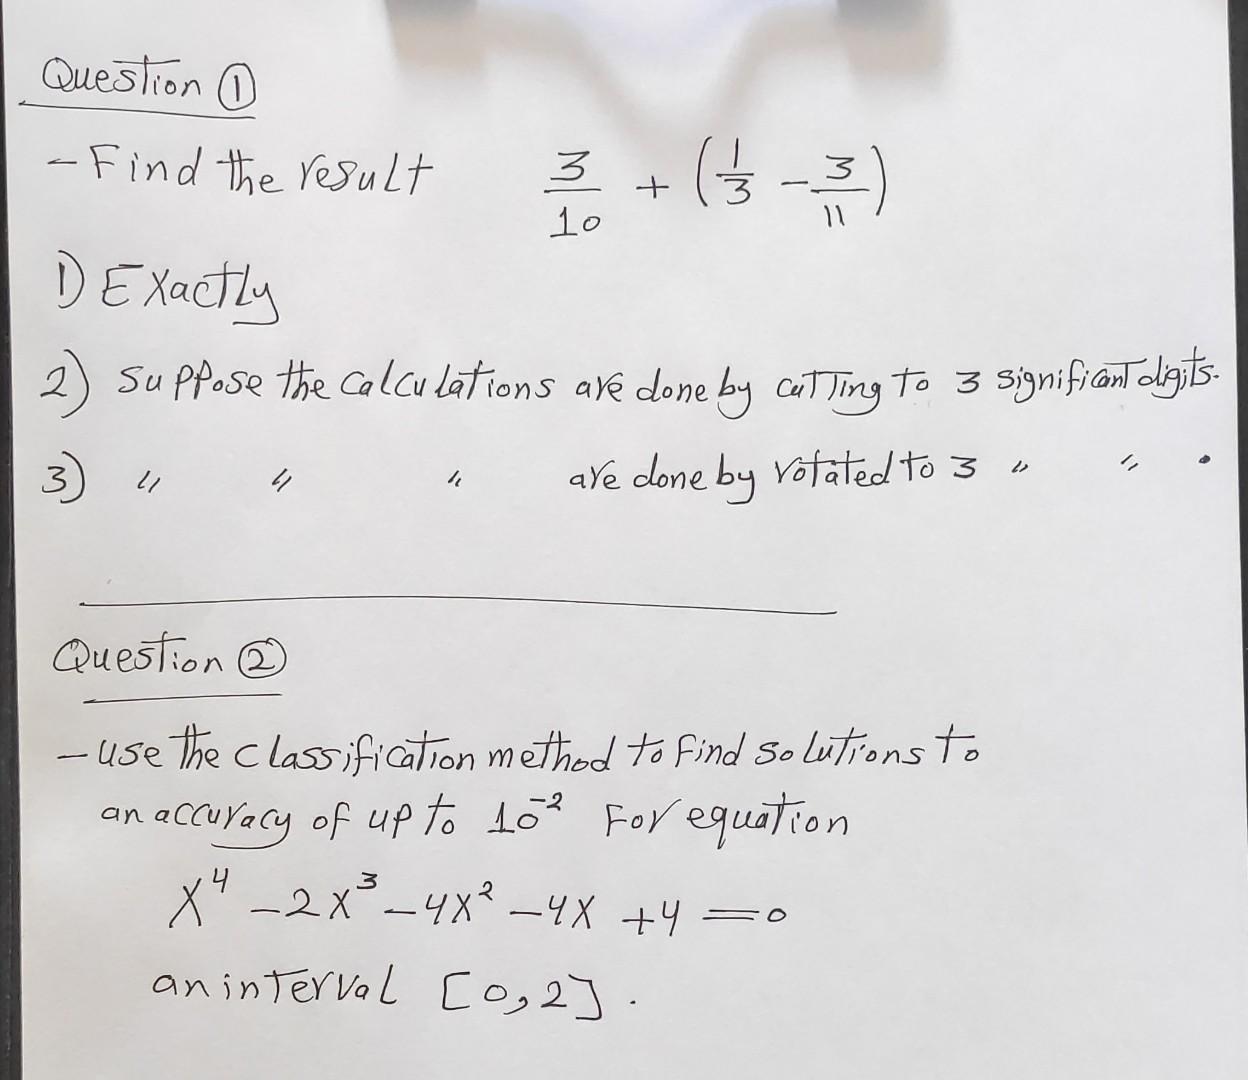 Question ①
- Find the result 3/10 + (1/3 - 3/11)
1) Exactly
2) suppose the calculations are done by cutting to 3 significant digits.
3) " " " are done by rotated to 3 " " .
Question ②
- use the classification method to find solutions to
an accuracy of up to 10⁻² For equation
x⁴ - 2x³ - 4x² - 4x + 4 = 0
an interval [0,2] .